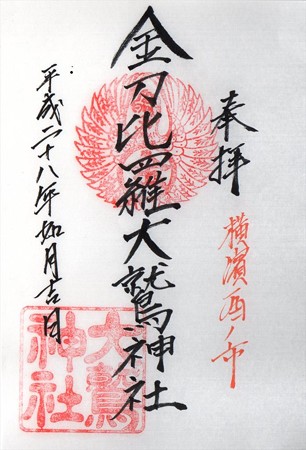 奉拝
横濱酉ノ市
金刀比羅大鷲神社
平成二十八年如月吉日
大鷲
神社